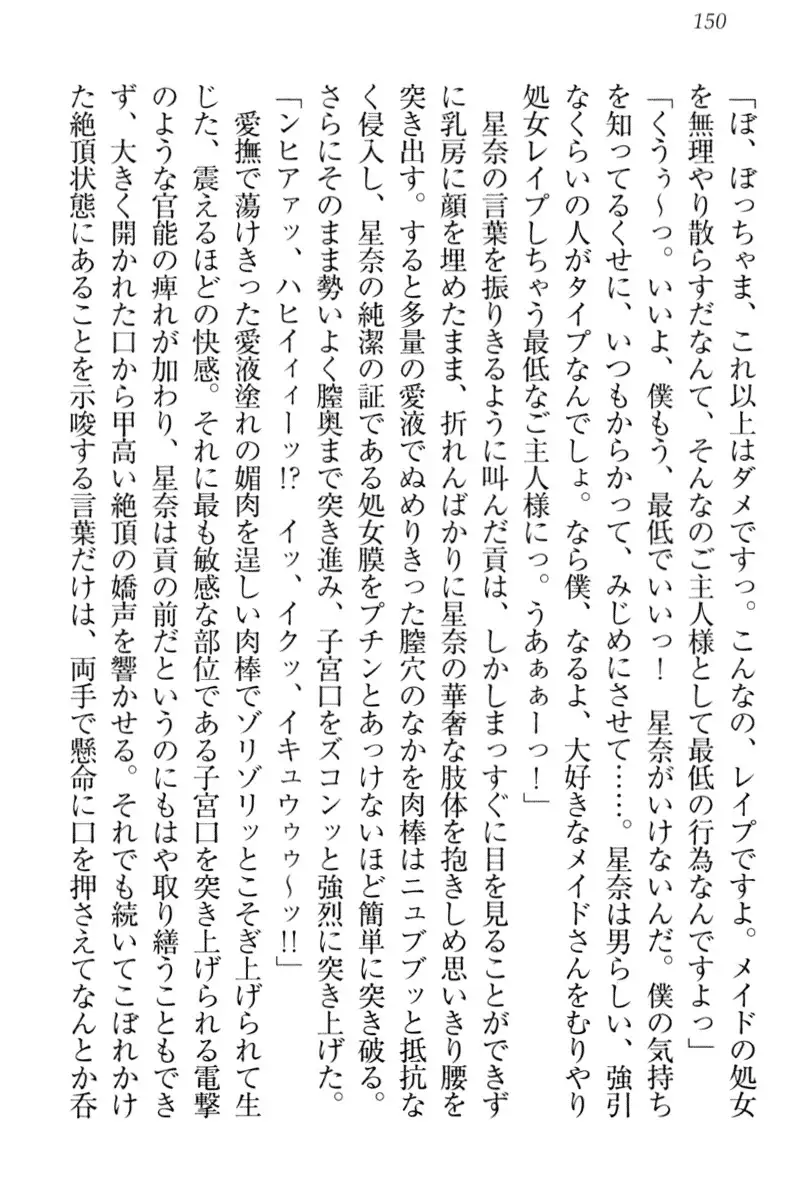 150
「ぼ、ぼっちゃま、これ以上はダメですっ。こんなの、レイプですよ。メイドの処女
を無理やり散らすだなんて、そんなのご主人様として最低の行為なんですよっ」
「くうぅ～っ。いいよ、僕もう、最低でいいっ！　星奈がいけないんだ。僕の気持ち
を知ってるくせに、いつもからかって、みじめにさせて……。星奈は男らしい、強引
なくらいの人がタイプなんでしょ。なら僕、なるよ、大好きなメイドさんをむりやり
処女レイプしちゃう最低なご主人様にっ。うあぁぁーっ！」
星奈の言葉を振りきるように叫んだ貢は、しかしまっすぐに目を見ることができず
に乳房に顔を埋めたまま、折れんばかりに星奈の華奢な肢体を抱きしめ思いきり腰を
突き出す。すると多量の愛液でぬめりきった膣穴のなかを肉棒はニュブブッと抵抗な
く侵入し、星奈の純潔の証である処女膜をプチンとあっけないほど簡単に突き破る。
さらにそのまま勢いよく膣奥まで突き進み、子宮口をズコンッと強烈に突き上げた。
「ンヒアァッ、ハヒイィィーッ!?　イッ、イクッ、イキュウゥゥ～ッ!!」
愛撫で蕩けきった愛液塗れの媚肉を逞しい肉棒でゾリゾリッとこそぎ上げられて生
じた、震えるほどの快感。それに最も敏感な部位である子宮口を突き上げられる電撃
のような官能の痺れが加わり、星奈は貢の前だというのにもはや取り繕うこともでき
ず、大きく開かれた口から甲高い絶頂の嬌声を響かせる。それでも続いてこぼれかけ
た絶頂状態にあることを示唆する言葉だけは、両手で懸命に口を押さえてなんとか呑